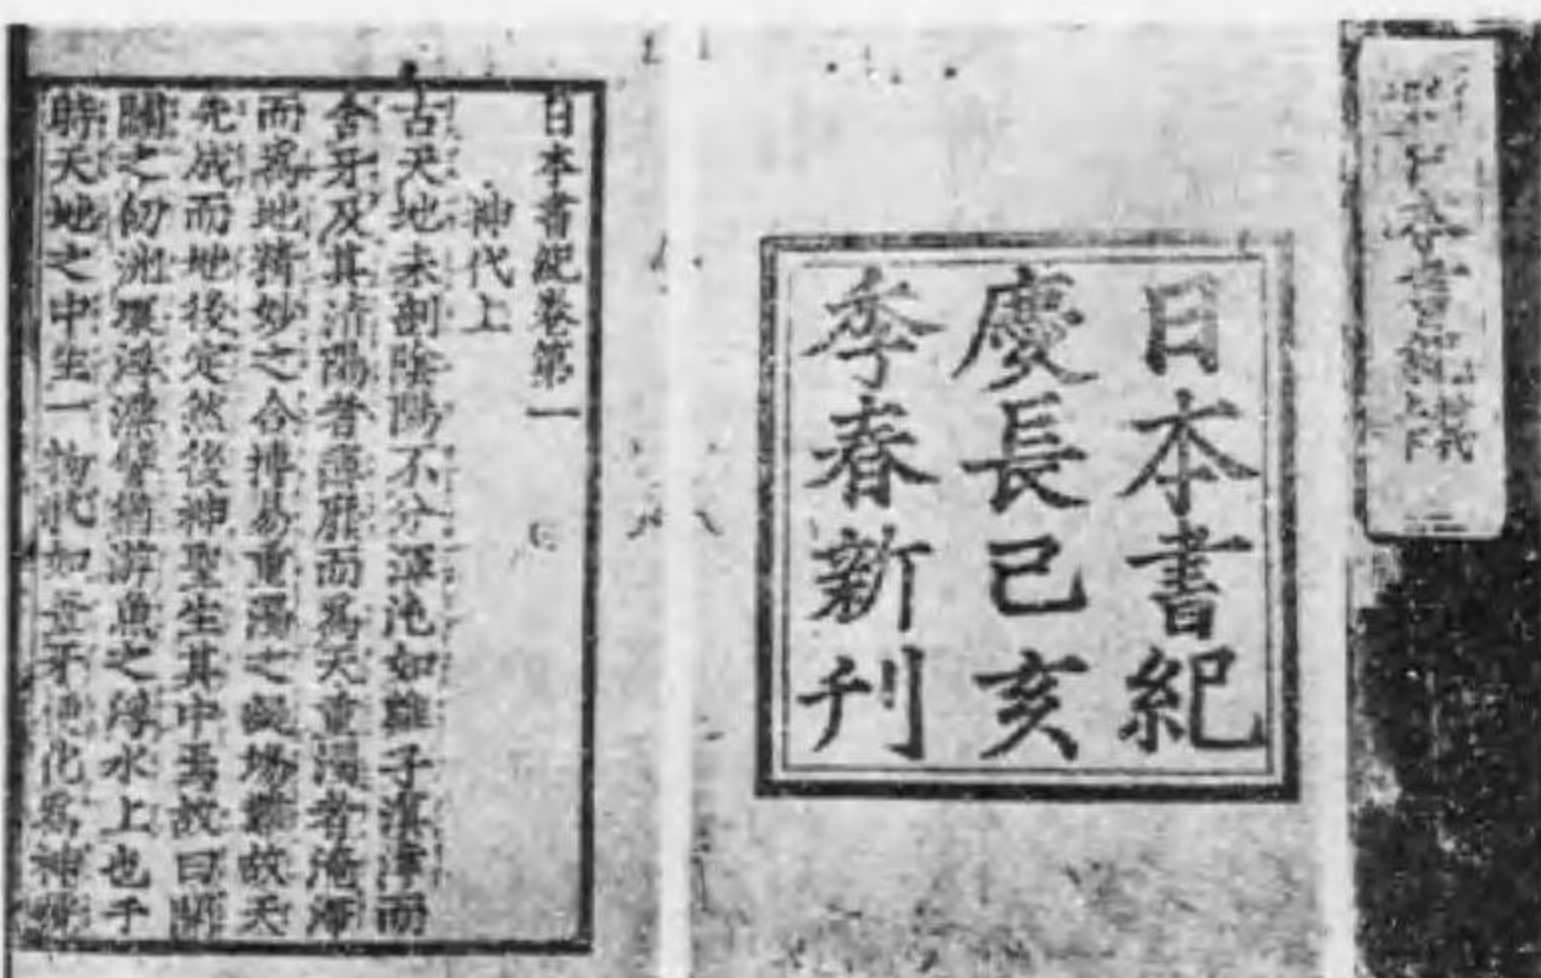 本書紀
日本書紀
慶長己亥
季春新刊
日本書紀卷第一
神代上
古天地未剖陰陽不分渾沌如雞子溟涬而
含牙及其清陽者薄靡而爲天重濁者淹滯
而爲地精妙之合摶易重濁之凝埸難故天
先成而地後定然後神聖生其中焉故曰開
闢之初洲壤浮漂譬猶游魚之浮水上也于
時天地之中生一物狀如葦牙便化爲神號